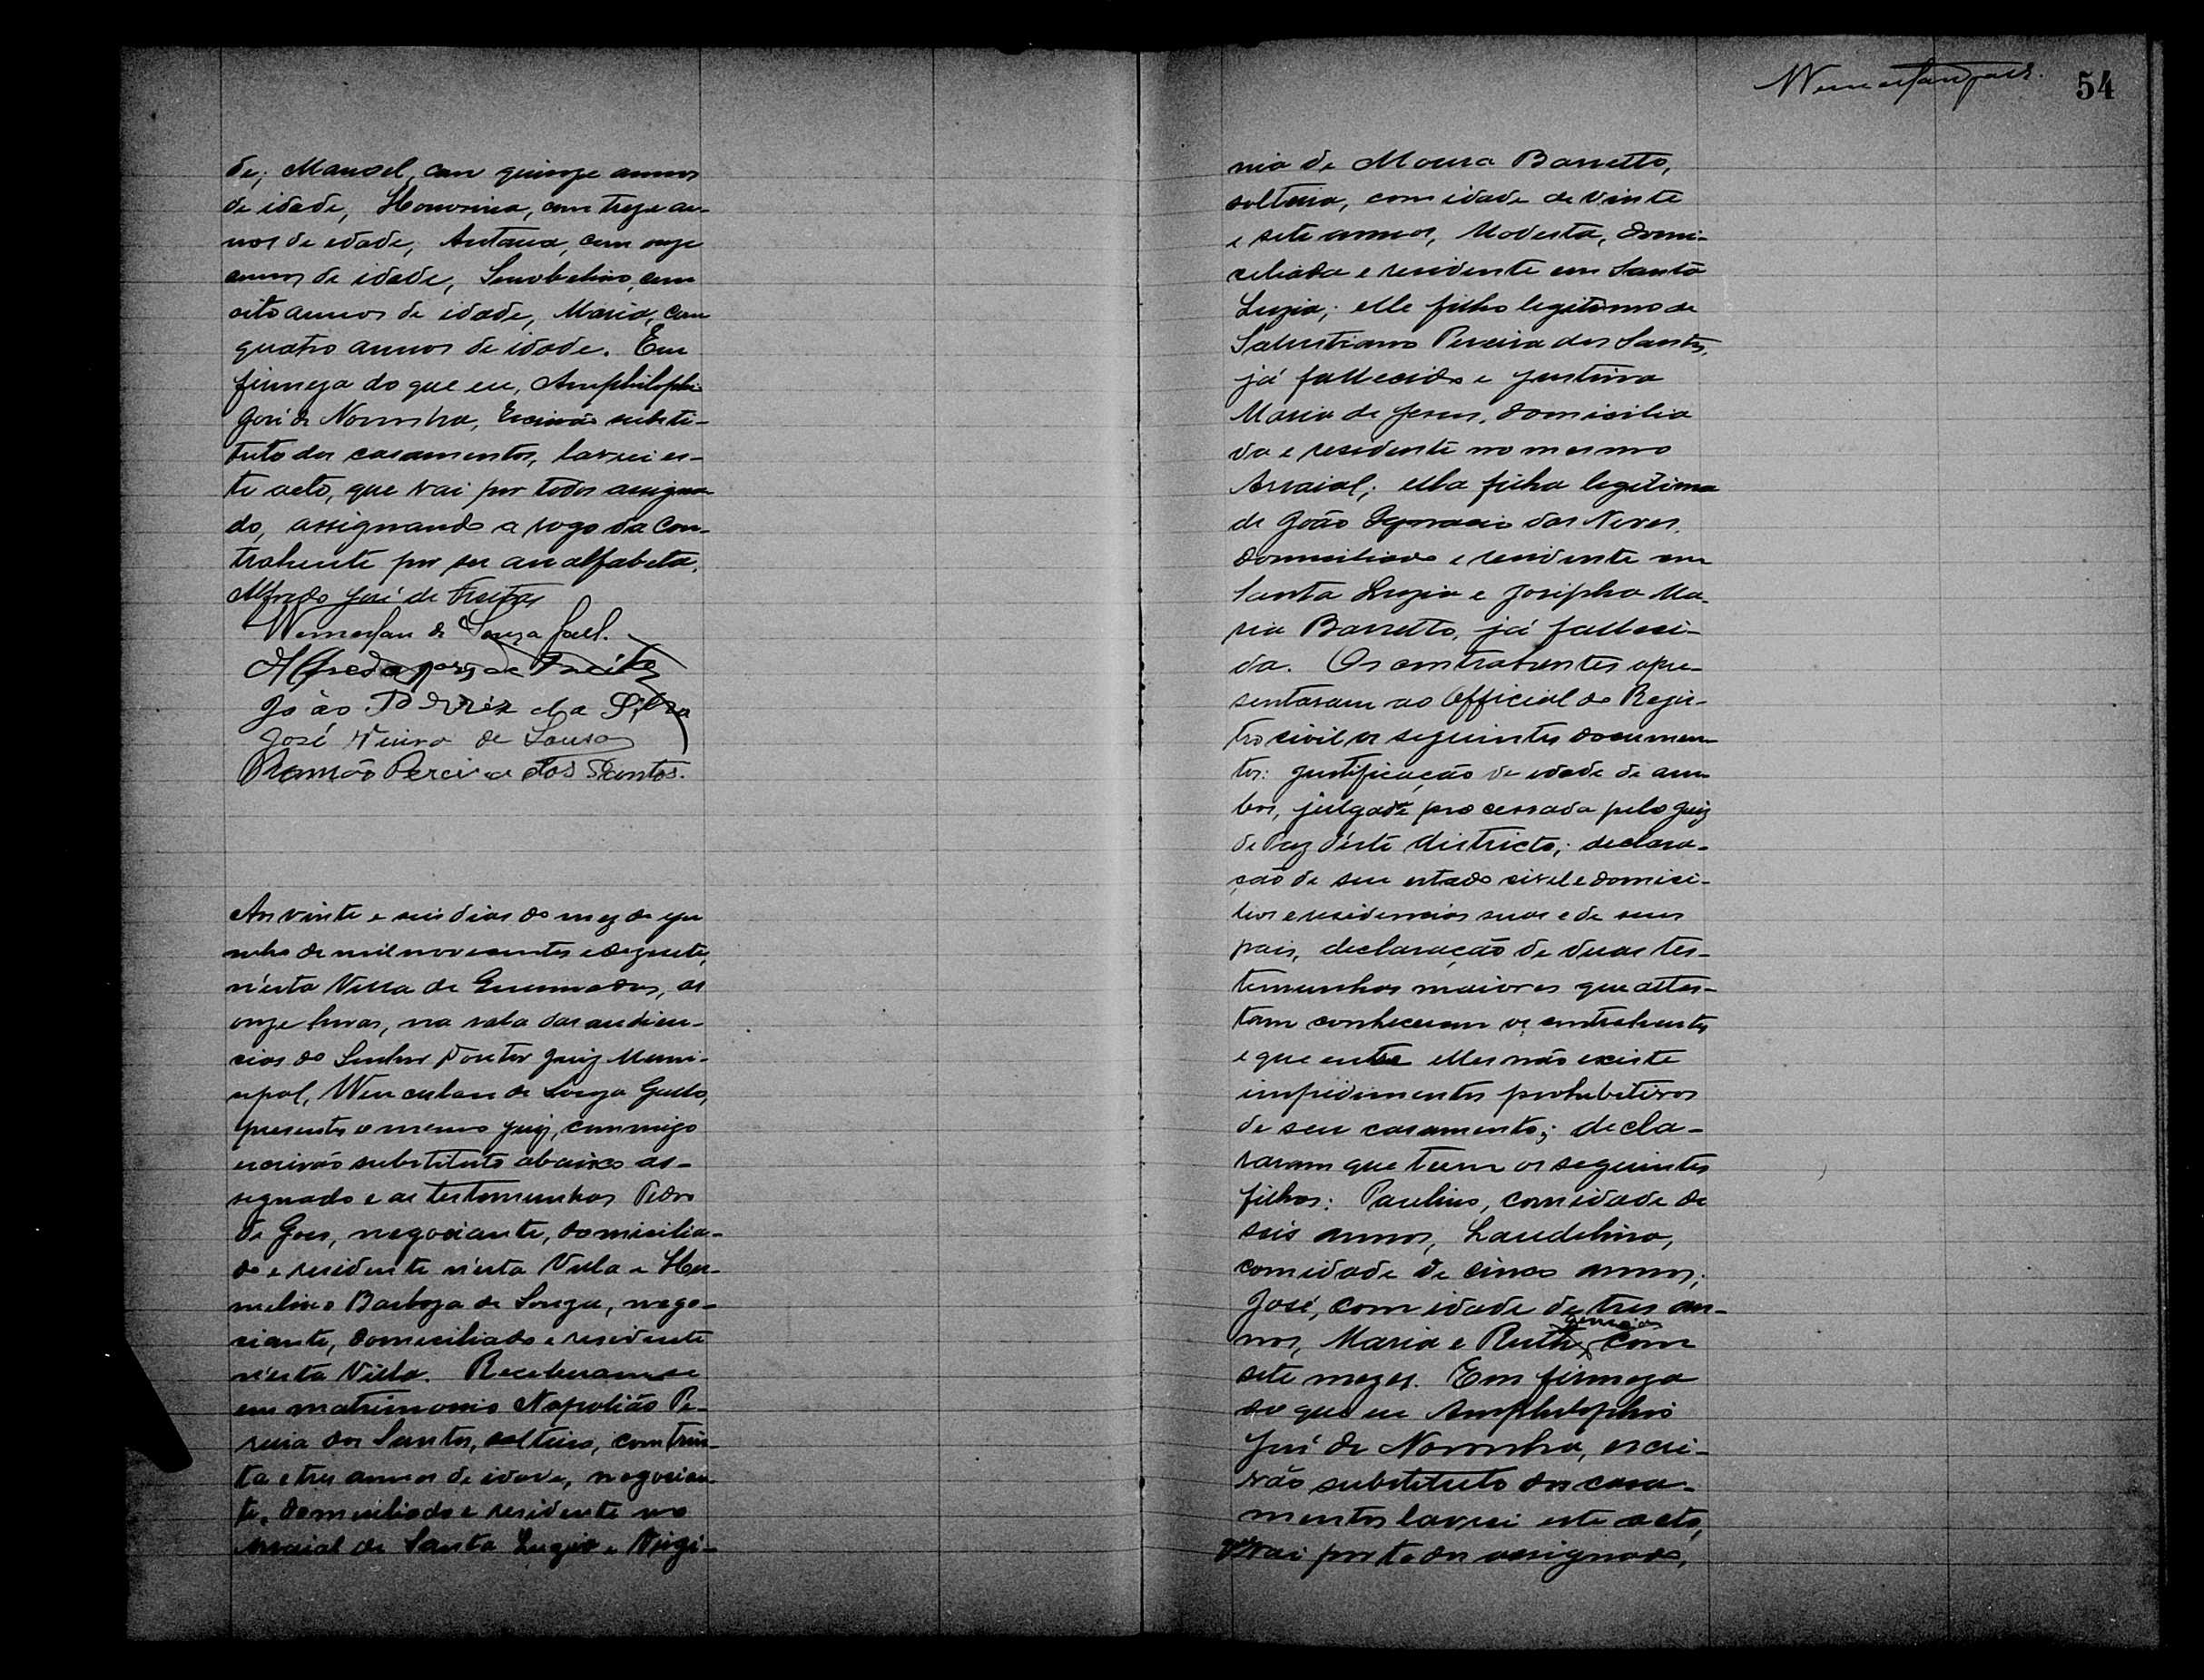 de; Manoel, com quinze annos
de idade, Honorina, com treze an-
nos de edade, Antana, com onze
annos de idade, com
oito annos de idade, Maria, com
quatro annos de idade. Em
firmeza do que eu, Amphilophio
José de Noronha, Escrivão substi-
tuto dos casamentos, lavrei es-
te acto, que vai por todos assigna-
do, assignando a rogo da con-
trahente por ser analfabeta,
Alfredo José de Freitas
de Souza
Alfredo José de Freitas
João da Silva
José de Sousa
Ramão Pereira dos Santos.
Aos vinte e seis dias do mez de ju
nho de mil novecentos e dezesete,
n'esta Villa de Queimadas, as
onze horas, na sala das audien-
cias do Senhor Doutor Juiz Muni-
cipal, de Souza
presentes o mesmo Juiz, commigo
escrivão substituto abaixo as-
signado e as testemunhas Pedro
de Goes, negociante, domicilia-
do e residente n'esta Villa e Her-
melino Barboza de Souza, nego-
ciante, domiciliado e residente
n'esta Villa. Receberam-se
em matrimonio Napolião Pe-
reira dos Santos, solteiro, com trin-
ta e tres annos de idade, negocian-
te, domiciliado e residente no
Arraial de Santa Luzia e Virgi-
54
nia de Moura Barretto,
solteira, com idade de vinte
e sete annos, Modesta, domi-
ciliada e residente em Santa
Luzia; elle filho legitimo de
Salustiano Pereira dos Santos,
já fallecido e Justina
Maria de Jesus, domicilia
da e residente no mesmo
Arraial; ella filha legitima
de João Ignacio das Neves,
domiciliado e residente em
Santa Luzia e Josepha Ma-
ria Barretto, já falleci-
da. Os contrahentes apre-
sentaram ao Official do Regis-
tro civil os seguintes documen-
tos: Justificação de idade de am-
bos, julgada e processada pelo Juiz
de Paz d'este districto; declara-
ção de seu estado civil e domici-
lios e residencias suas e de seus
pais, declaração de duas tes-
temunhas maiores que attes-
tam conhecerem os contrahentes
e que entre elles não existe
impedimentos prohibitivos
de seu casamento; decla-
raram que teem os seguintes
filhos: Paulino, com idade de
seis annos, Laudelina,
com idade de cinco annos;
José, com idade de tres an-
nos, Maria e Ruth, gemeias com
sete mezes. Em firmeza
do que eu Amphilophio
José de Noronha, escri-
vão substituto dos casa-
mentos lavrei este acto,
que vai por todos assignado,